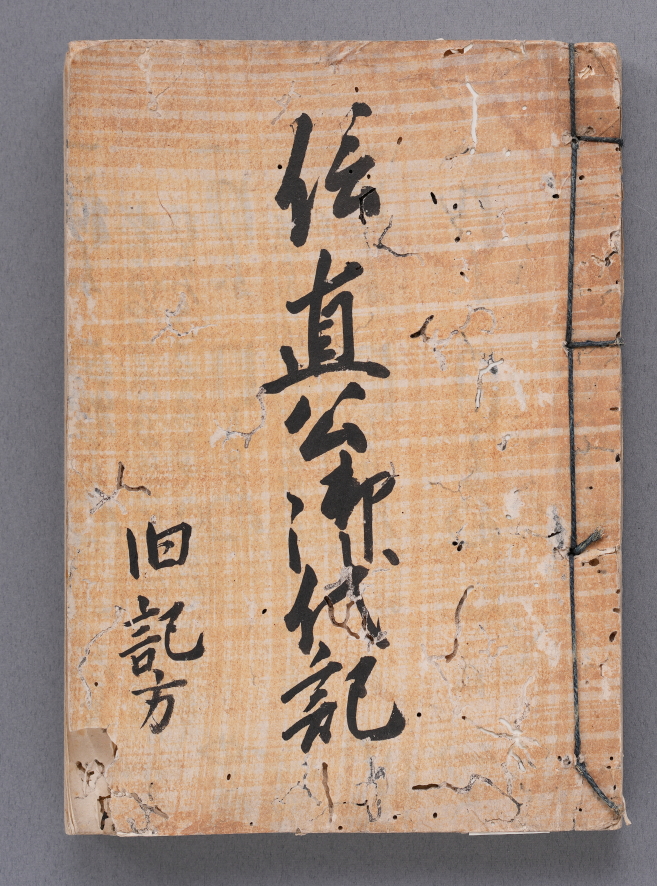 信直公御代記
旧記方